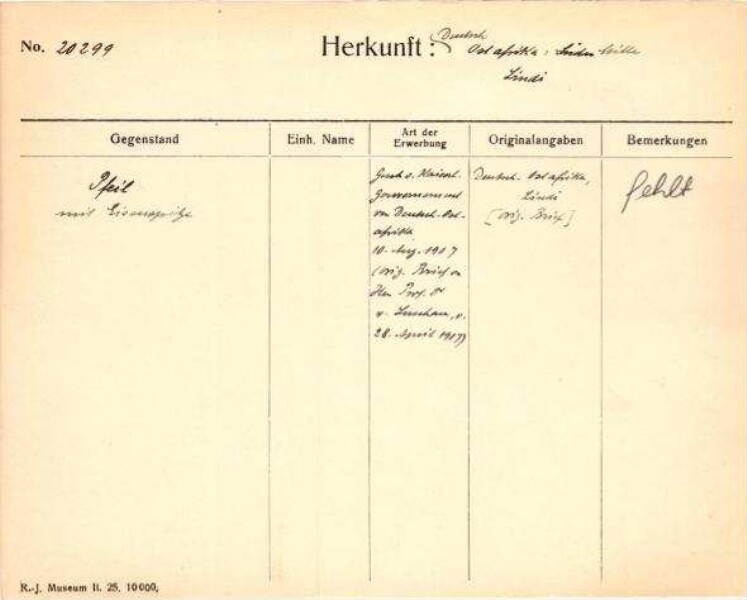 No. 20299
Herkunft: Deutsch
Ost afrika:
Lindi
Gegenstand
Einh. Name
Art der
Erwerbung
Originalangaben
Bemerkungen
Pfeil
mit Eisenspitze
Gesch. v. Kaiserl.
Gouvernement
von Deutsch-Ost-
afrika
10. Aug. 1907
(orig. Brief v.
Herr Prof. Dr
v. Luschan, v.
28. April 1907)
Deutsch-Ostafrika,
Lindi
[orig. Brief]
fehlt
R.-J. Museum II. 25. 10000,